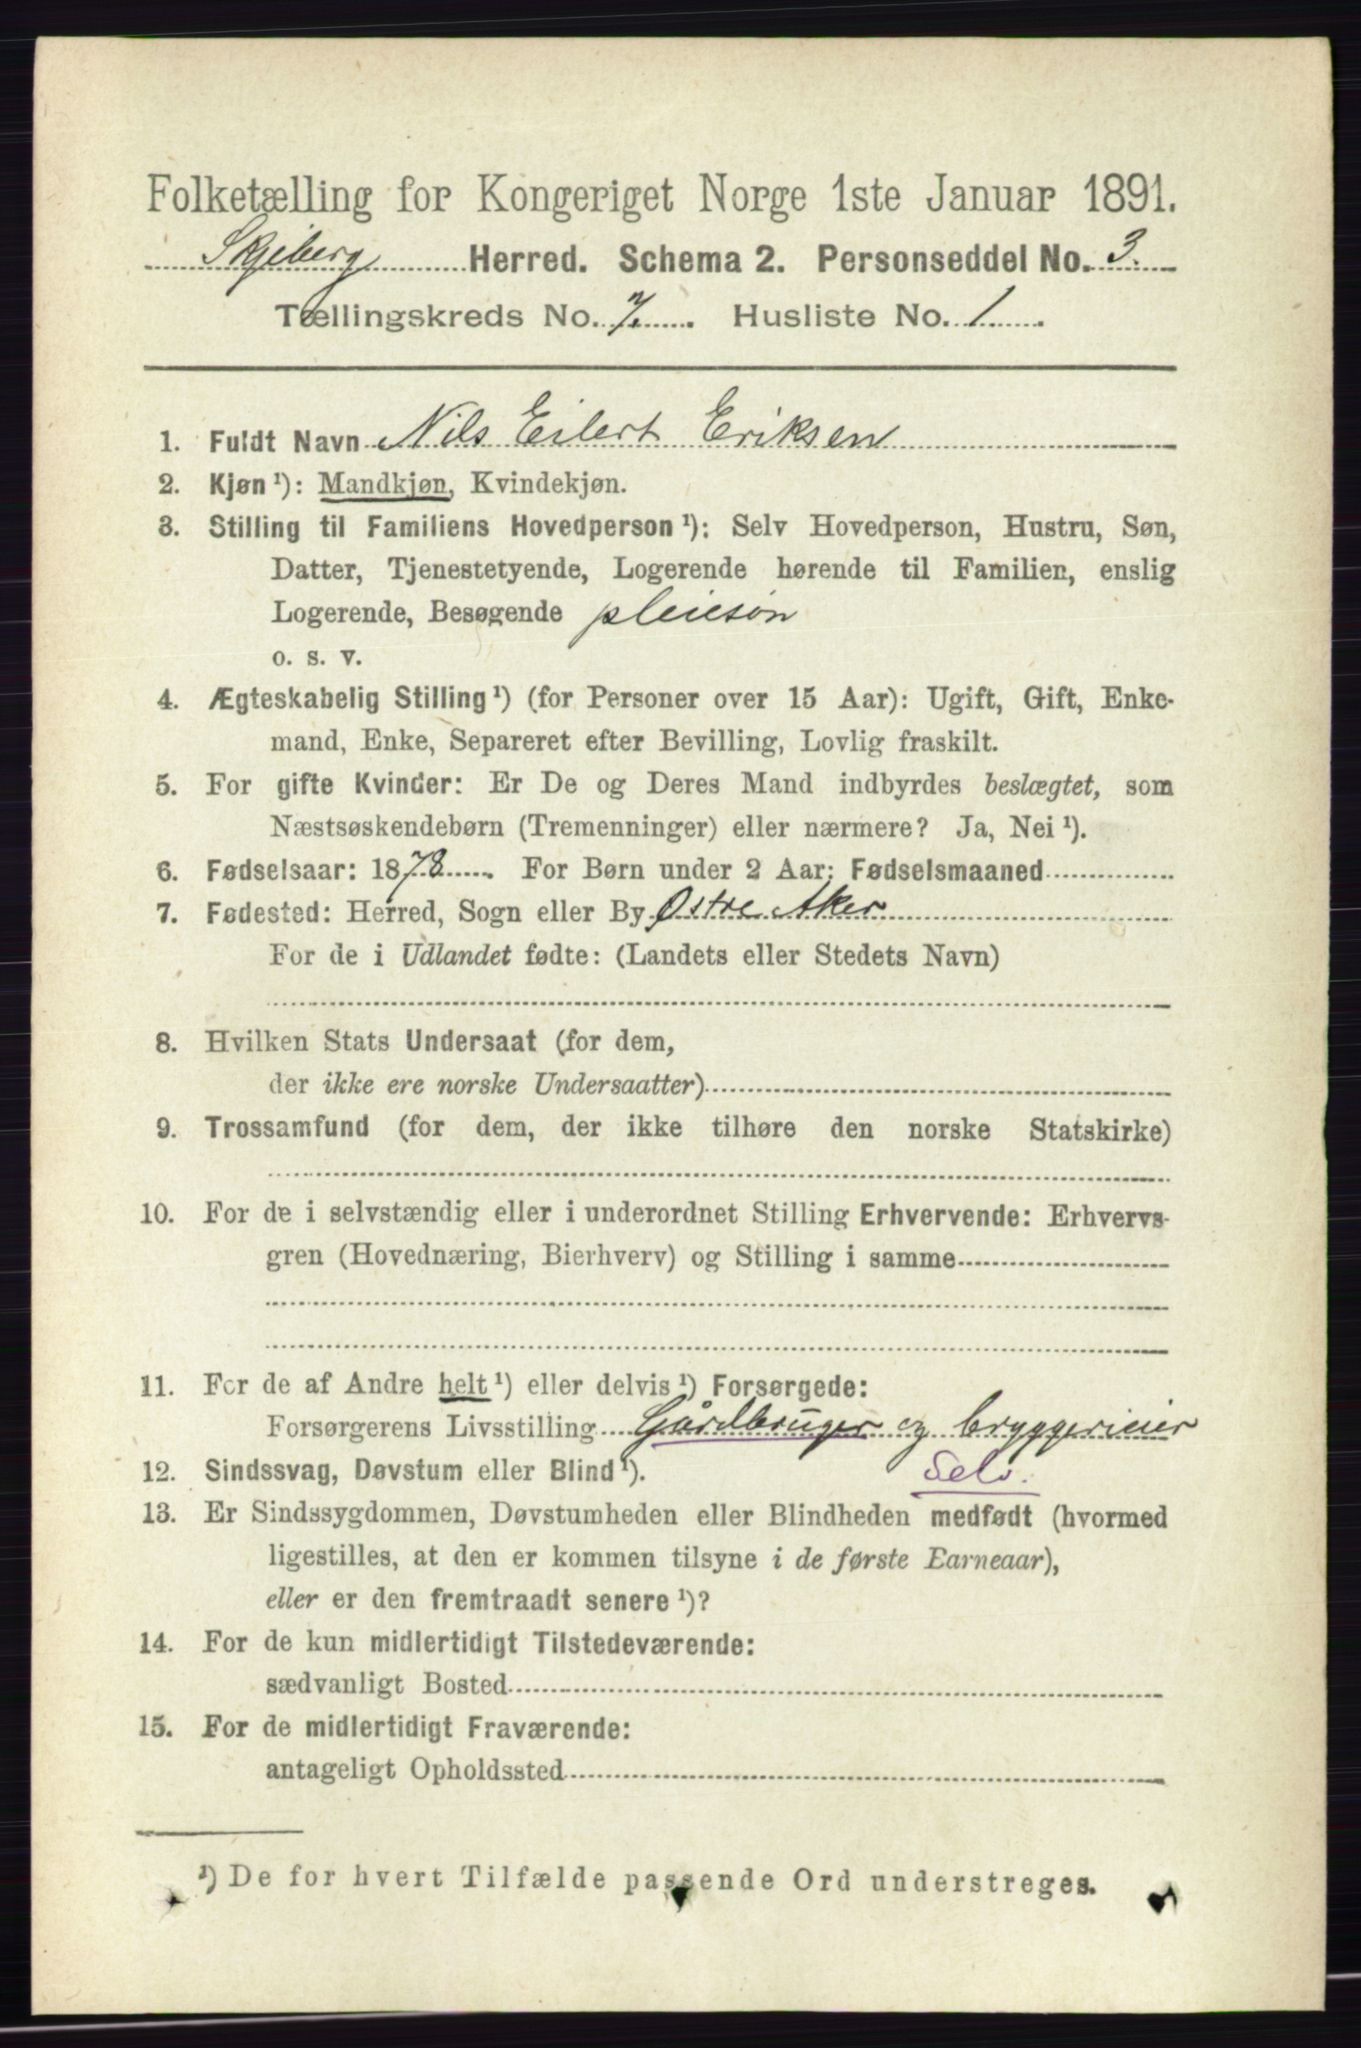 Folketælling for Kongeriget Norge 1ste Januar 1891.
Skjeberg Herred. Schema 2. Personseddel No. 3.
Tællingskreds No. 7. Husliste No. 1
1. Fuldt Navn Nils Eilert Eriksen
2. Kjøn ¹): Mandkjøn, Kvindekjøn.
3. Stilling til Familiens Hovedperson ¹): Selv Hovedperson, Hustru, Søn,
Datter, Tjenestetyende, Logerende hørende til Familien, enslig
Logerende, Besøgende pleiesön
o. s. v.
4. Ægteskabelig Stilling ¹) (for Personer over 15 Aar): Ugift, Gift, Enke-
mand, Enke, Separeret efter Bevilling, Lovlig fraskilt.
5. For gifte Kvinder: Er De og Deres Mand indbyrdes beslægtet, som
Næstsøskendebørn (Tremenninger) eller nærmere? Ja, Nei ¹).
6. Fødselsaar: 1878. For Børn under 2 Aar: Fødselsmaaned
7. Fødested: Herred, Sogn eller By Østre Aker
For de i Udlandet fødte: (Landets eller Stedets Navn)
8. Hvilken Stats Undersaat (for dem,
der ikke ere norske Undersaatter)
9. Trossamfund (for dem, der ikke tilhøre den norske Statskirke)
10. For de i selvstændig eller i underordnet Stilling Erhvervende: Erhvervs-
gren (Hovednæring, Bierhverv) og Stilling i samme
11. For de af Andre helt ¹) eller delvis ¹) Forsørgede:
Forsørgerens Livsstilling Gårdbruger og bryggerieier
12. Sindssvag, Døvstum eller Blind ¹). Selv.
13. Er Sindssygdommen, Døvstumheden eller Blindheden medfødt (hvormed
ligestilles, at den er kommen tilsyne i de første Earneaar),
eller er den fremtraadt senere ¹)?
14. For de kun midlertidigt Tilstedeværende:
sædvanligt Bosted
15. For de midlertidigt Fraværende:
antageligt Opholdssted
¹) De for hvert Tilfælde passende Ord understreges.